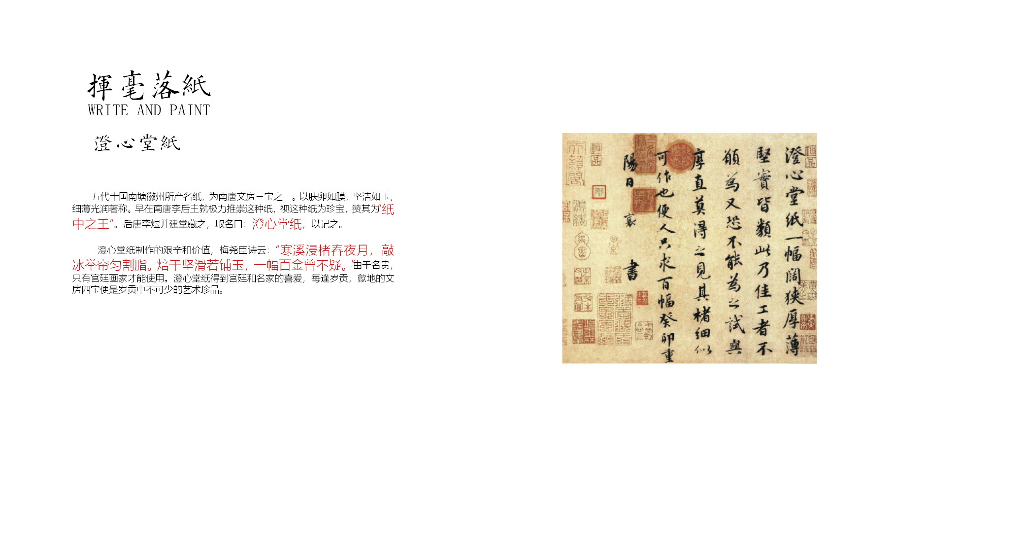 揮毫落紙
WRITE AND PAINT
澄心堂紙
五代十国南唐徽州所产名纸，为南唐文房三宝之一。以肤卵如膜，坚洁如玉，
细薄光润著称。早在南唐李后主就极力推崇这种纸，视这种纸为珍宝，赞其为“纸
中之王”。后唐李煜并建堂藏之，取名曰：澄心堂纸，以记之。
澄心堂纸制作的艰辛和价值，梅尧臣诗云：“寒溪浸楮舂夜月，敲
冰举帘匀割脂。焙干坚滑若铺玉，一幅百金曾不疑。”由于名贵，
只有宫廷画家才能使用。澄心堂纸得到宫廷和名家的喜爱，每逢岁贡，徽地的文
房四宝便是岁贡中不可少的艺术珍品。
澄心堂纸一幅闊狹厚薄
堅實皆類此乃佳工者不
願為又恐不能為之試與
厚直莫得之見其楮細似
可作也便人只求百幅癸卯重
陽日襄書